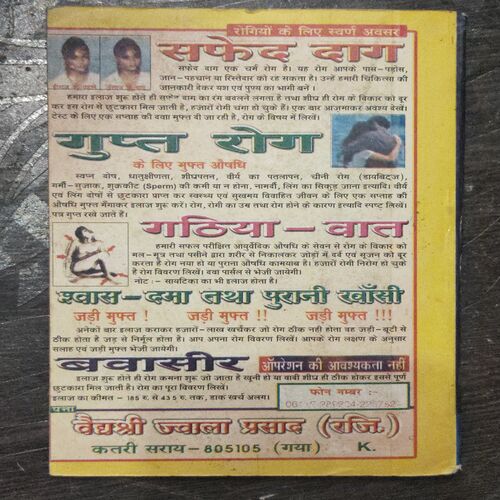 रोगियों के लिए स्वर्ण अवसर
सफेद दाग
सफेद दाग एक चर्म रोग है। यह रोग आपके पास-पड़ोस,
जान-पहचान या रिस्तेदार को रह सकता है। उन्हें हमारी चिकित्सा की
जानकारी देकर यश एवं पुण्य का भागी बनें।
हमारा इलाज शुरू होते ही सफेद दाग का रंग बदलने लगता है तथा शीघ्र ही रोग के विकार को दूर
कर इस रोग से छुटकारा मिल जाता है, हजारों रोगी चांगा हो चुके है। एक बार आजमाकर अवश्य देखें।
टेस्ट के लिए एक सप्ताह की दवा मुफ्त दी जा रही है, रोग के विषय में लिखें।
गुप्त रोग
के लिए मुफ्त औषधि
स्वप्न दोष, धातुक्षीणता, शीघ्रपतन, वीर्य का पतलापन, चीनी रोग (डायबिट्ज),
गर्मी-सुजाक, शुक्रकीट (Sperm) की कमी या न होना, नामर्दी, लिंग का सिकुड़ जाना इत्यादि। वीर्य
एवं लिंग दोषों से छुटकारा प्राप्त कर स्वस्थ्य एवं सुखमय विवाहित जीवन के लिए एक सप्ताह की
औषधि मुफ्त मँगाकर इलाज शुरू करें। रोग, रोगी का उम्र तथा रोग होने के कारण इत्यादि स्पष्ट लिखें।
पत्र गुप्त रखे जाते हैं।
गठिया-वात
हमारी सफल परीक्षित आयुर्वेदिक औषधि के सेवन से रोग के विकार को
मल-मूत्र तथा पसीने द्वारा शरीर से निकालकर जोड़ों में दर्द एवं सूजन को दूर
करता है रोग नया हो या पुराना औषधि कामयाब है। हजारों रोगी निरोग हो चुके
हैं रोग विवरण लिखें। दवा पार्सल से भेजी जायेगी।
नोट :- सायटिका का भी इलाज होता है।
श्वास-दमा तथा पुरानी खाँसी
जड़ी मुफ्त ! जड़ी मुफ्त !! जड़ी मुफ्त !!!
अनेकों बार इलाज कराकर हजारों-लाख खर्चकर जो रोग ठीक नही होता वह जड़ी-बूटी से
ठीक होता है जड़ से निर्मूल होता है। आप अपना रोग विवरण लिखें। आपके रोग लक्षण के अनुसार
सलाह एवं जड़ी मुफ्त भेजी जायेगी।
बवासीर ऑपरेशन की आवश्यकता नहीं
इलाज शुरू होते ही रोग कमना शुरू हो जाता है खूनी हो या वादी शीघ्र ही ठीक होकर इससे पूर्ण
छुटकारा मिल जाता है। रोग का पूरा विवरण लिखें।
इलाज का कीमत- 185 रु. से 435 रु. तक, डाक खर्च अलग।
फोन नम्बर :-
पता
वैद्यश्री ज्वाला प्रसाद (रजि.)
कतरी सराय-805105 (गया) K.